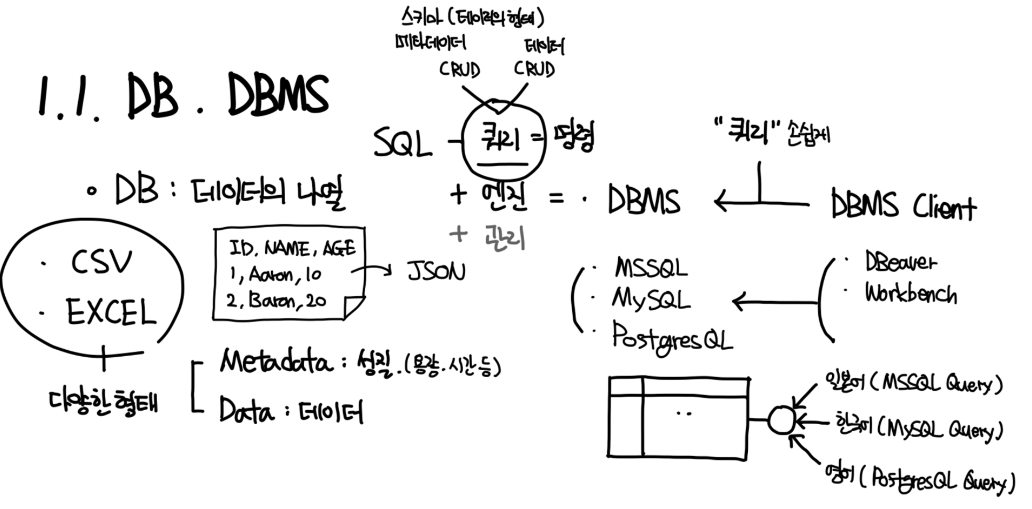 스키마 (데이터의 형태)
메타데이터 데이터
CRUD CRUD
1.1. DB · DBMS
SQL - 쿼리 = 명령
"쿼리" 손쉽게
• DB : 데이터의 나열
+ 엔진 = · DBMS ← DBMS Client
+ 관리
· CSV
· EXCEL
다양한 형태
ID, NAME, AGE
1, Aaron, 10
2, Baron, 20
→ JSON
Metadata : 성질. (용량·시간 등)
Data : 데이터
· MSSQL
· MySQL
· PostgresQL
· DBeaver
· Workbench
일본어 (MSSQL Query)
한국어 (MySQL Query)
영어 (PostgresQL Query)